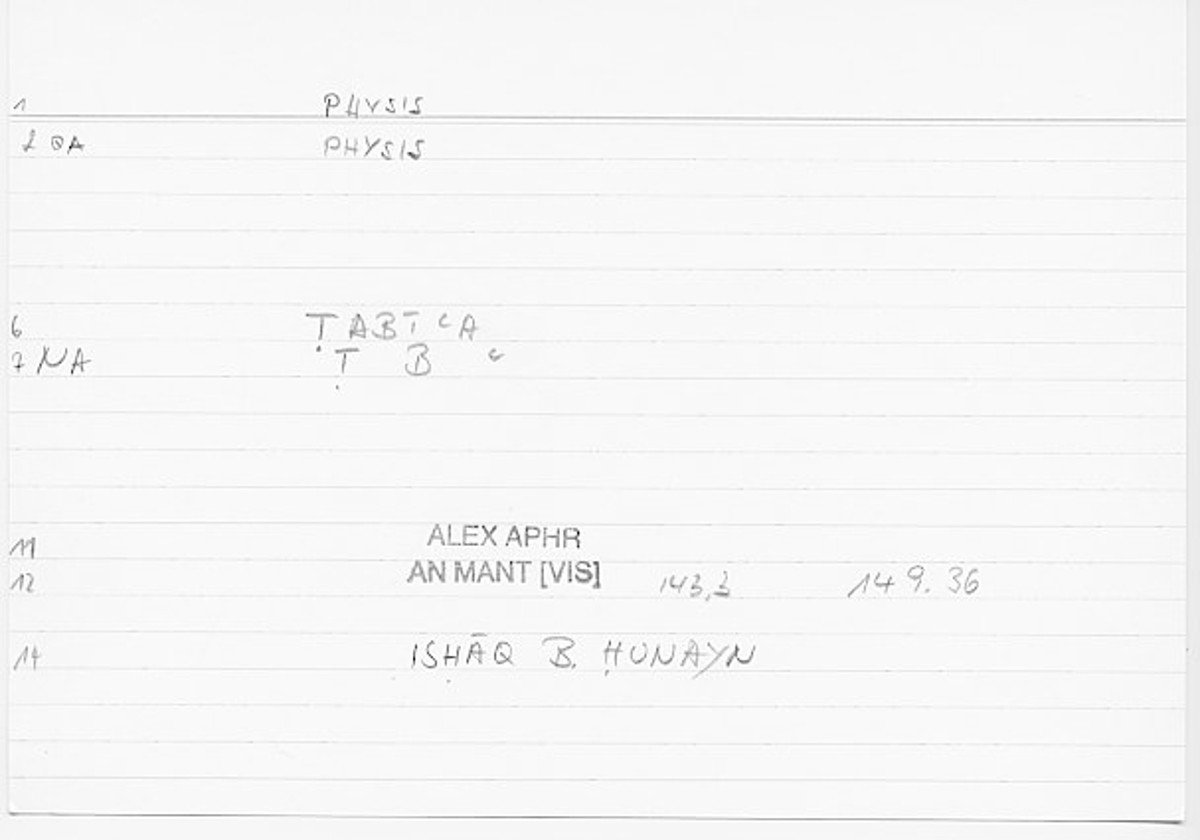 1 PHYSIS
2 QA PHYSIS
6 ṬABĪʿA
7 NA Ṭ B ʿ
11 ALEX APHR
12 AN MANT [VIS] 143,3 149.36
14 ISḤĀQ B. ḤUNAYN